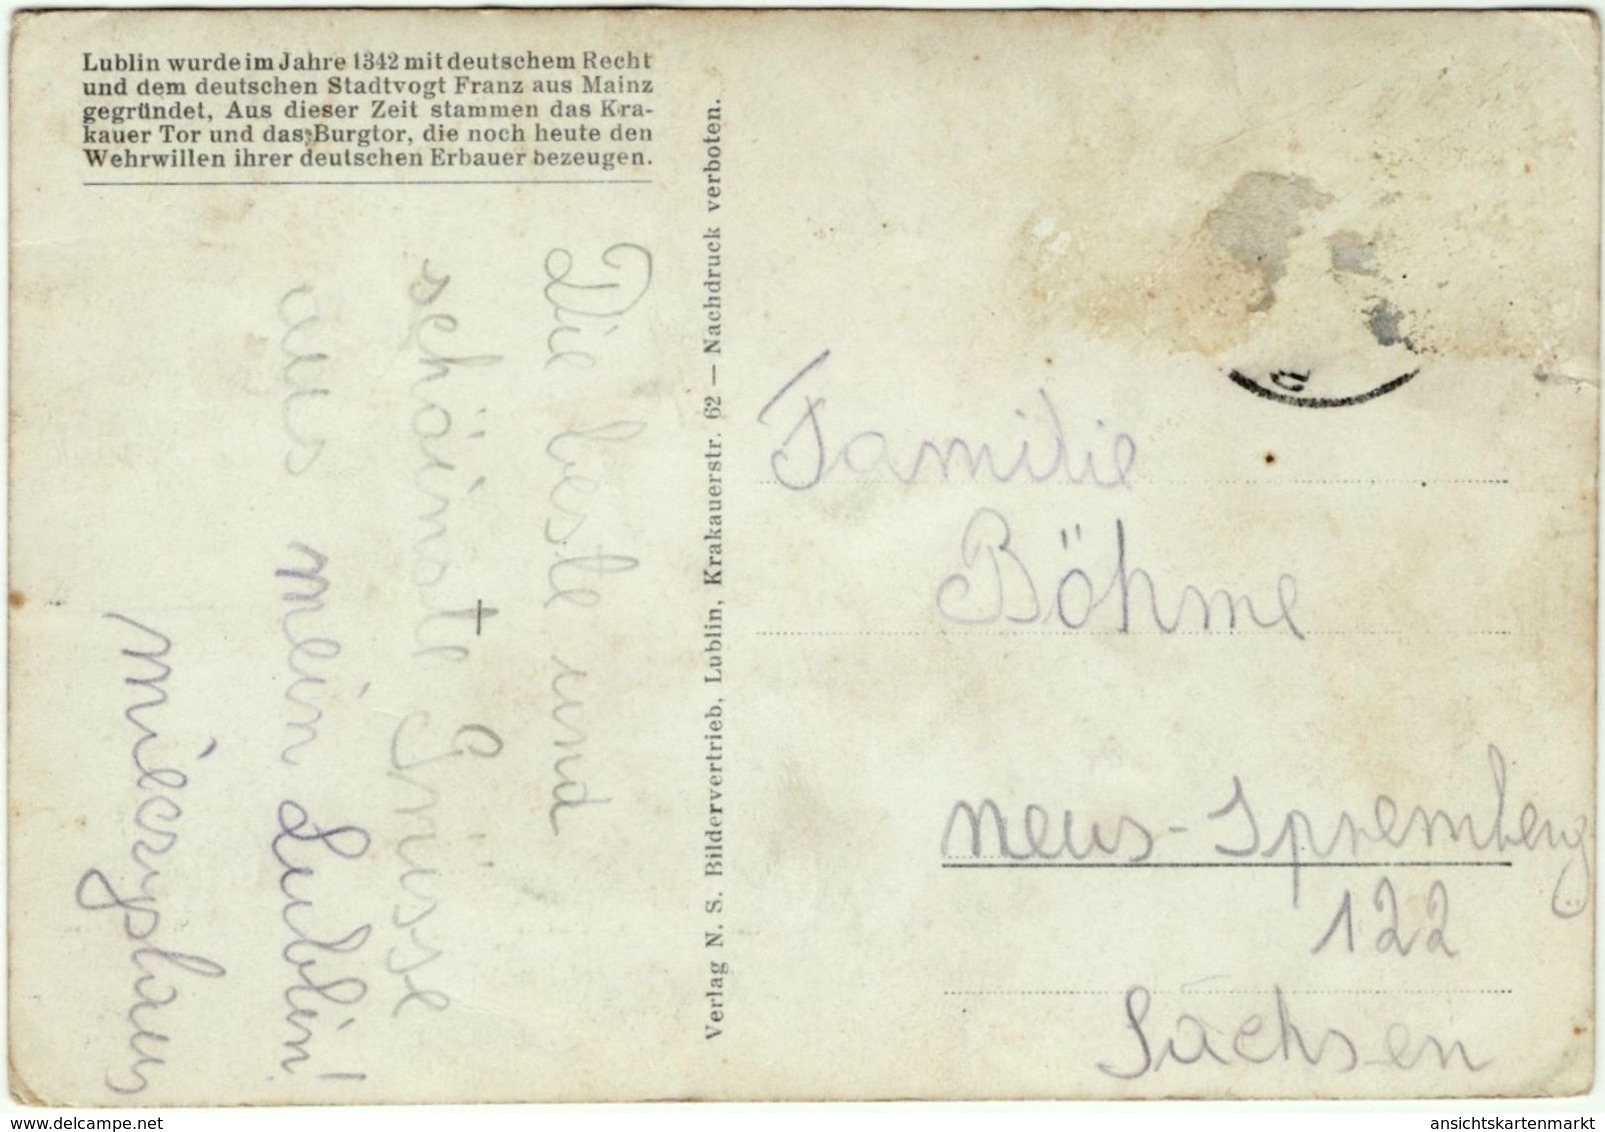 Lublin wurde im Jahre 1342 mit deutschem Recht
und dem deutschen Stadtvogt Franz aus Mainz
gegründet, Aus dieser Zeit stammen das Kra-
kauer Tor und das Burgtor, die noch heute den
Wehrwillen ihrer deutschen Erbauer bezeugen.
Die beste und
schöinste Grüsse
aus mein Lublin!
Verlag N. S. Bildervertrieb, Lublin, Krakauerstr. 62 — Nachdruck verboten.
Familie
Böhme
Neus-Spremberg
122
Sachsen
www.delcampe.net
ansichtskartenmarkt